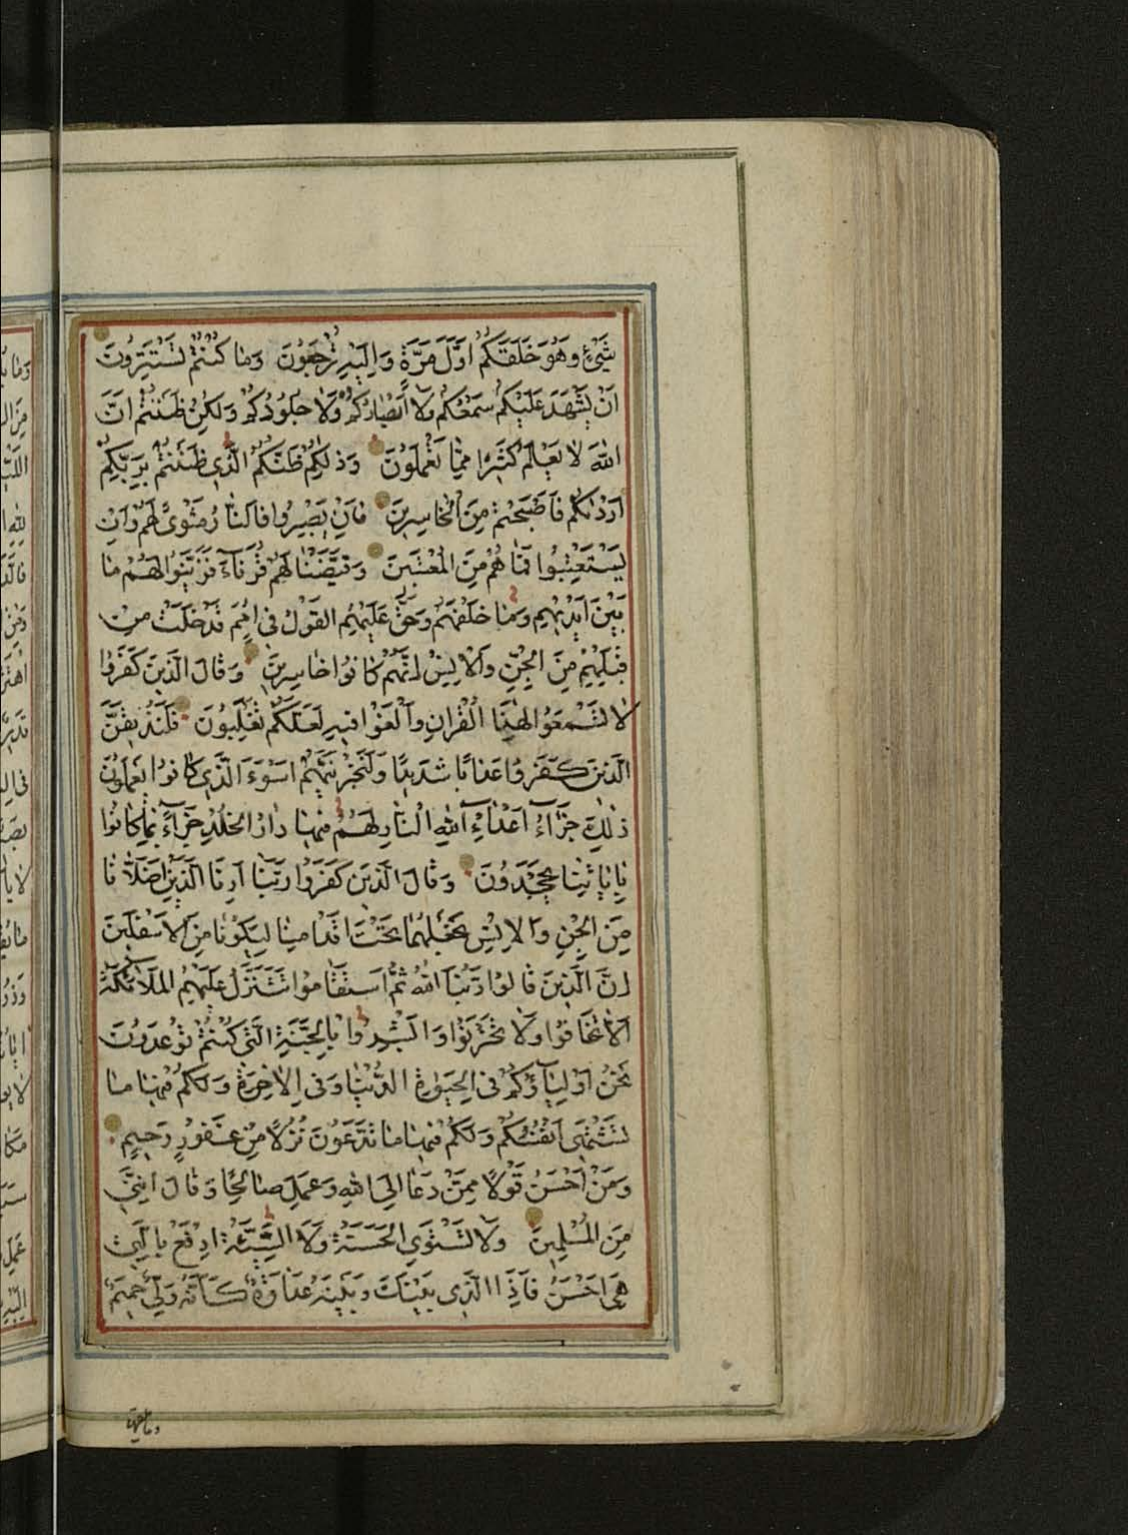 شَيْءٍ وَهُوَ خَلَقَكُمْ اَوَّلَ مَرَّةٍ وَاِلَيْهِ تُرْجَعُونَ وَمَا كُنْتُمْ تَسْتَتِرُونَ
اَنْ يَشْهَدَ عَلَيْكُمْ سَمْعُكُمْ وَلَا اَبْصَارُكُمْ وَلَا جُلُودُكُمْ وَلٰكِنْ ظَنَنْتُمْ اَنَّ
اللهَ لَا يَعْلَمُ كَثِيرًا مِمَّا تَعْمَلُونَ وَذٰلِكُمْ ظَنُّكُمُ الَّذِي ظَنَنْتُمْ بِرَبِّكُمْ
اَرْدٰىكُمْ فَاَصْبَحْتُمْ مِنَ الْخَاسِرِينَ فَاِنْ يَصْبِرُوا فَالنَّارُ مَثْوًى لَهُمْ وَاِنْ
يَسْتَعْتِبُوا فَمَا هُمْ مِنَ الْمُعْتَبِينَ وَقَيَّضْنَا لَهُمْ قُرَنَاءَ فَزَيَّنُوا لَهُمْ مَا
بَيْنَ اَيْدِيهِمْ وَمَا خَلْفَهُمْ وَحَقَّ عَلَيْهِمُ الْقَوْلُ فِي اُمَمٍ قَدْ خَلَتْ مِنْ
قَبْلِهِمْ مِنَ الْجِنِّ وَالْاِنْسِ اِنَّهُمْ كَانُوا خَاسِرِينَ وَقَالَ الَّذِينَ كَفَرُوا
لَا تَسْمَعُوا لِهٰذَا الْقُرْاٰنِ وَالْغَوْا فِيهِ لَعَلَّكُمْ تَغْلِبُونَ فَلَنُذِيقَنَّ
الَّذِينَ كَفَرُوا عَذَابًا شَدِيدًا وَلَنَجْزِيَنَّهُمْ اَسْوَءَ الَّذِي كَانُوا يَعْمَلُونَ
ذٰلِكَ جَزَاءُ اَعْدَاءِ اللهِ النَّارُ لَهُمْ فِيهَا دَارُ الْخُلْدِ جَزَاءً بِمَا كَانُوا
بِاٰيَاتِنَا يَجْحَدُونَ وَقَالَ الَّذِينَ كَفَرُوا رَبَّنَا اَرِنَا الَّذَيْنِ اَضَلَّانَا
مِنَ الْجِنِّ وَالْاِنْسِ نَجْعَلْهُمَا تَحْتَ اَقْدَامِنَا لِيَكُونَا مِنَ الْاَسْفَلِينَ
اِنَّ الَّذِينَ قَالُوا رَبُّنَا اللهُ ثُمَّ اسْتَقَامُوا تَتَنَزَّلُ عَلَيْهِمُ الْمَلَائِكَةُ
اَلَّا تَخَافُوا وَلَا تَحْزَنُوا وَاَبْشِرُوا بِالْجَنَّةِ الَّتِي كُنْتُمْ تُوعَدُونَ
نَحْنُ اَوْلِيَاؤُكُمْ فِي الْحَيٰوةِ الدُّنْيَا وَفِي الْاٰخِرَةِ وَلَكُمْ فِيهَا مَا
تَشْتَهِي اَنْفُسُكُمْ وَلَكُمْ فِيهَا مَا تَدَّعُونَ نُزُلًا مِنْ غَفُورٍ رَحِيمٍ
وَمَنْ اَحْسَنُ قَوْلًا مِمَّنْ دَعَا اِلَى اللهِ وَعَمِلَ صَالِحًا وَقَالَ اِنَّنِي
مِنَ الْمُسْلِمِينَ وَلَا تَسْتَوِي الْحَسَنَةُ وَلَا السَّيِّئَةُ اِدْفَعْ بِالَّتِي
هِيَ اَحْسَنُ فَاِذَا الَّذِي بَيْنَكَ وَبَيْنَهُ عَدَاوَةٌ كَاَنَّهُ وَلِيٌّ حَمِيمٌ
وما يلقيها